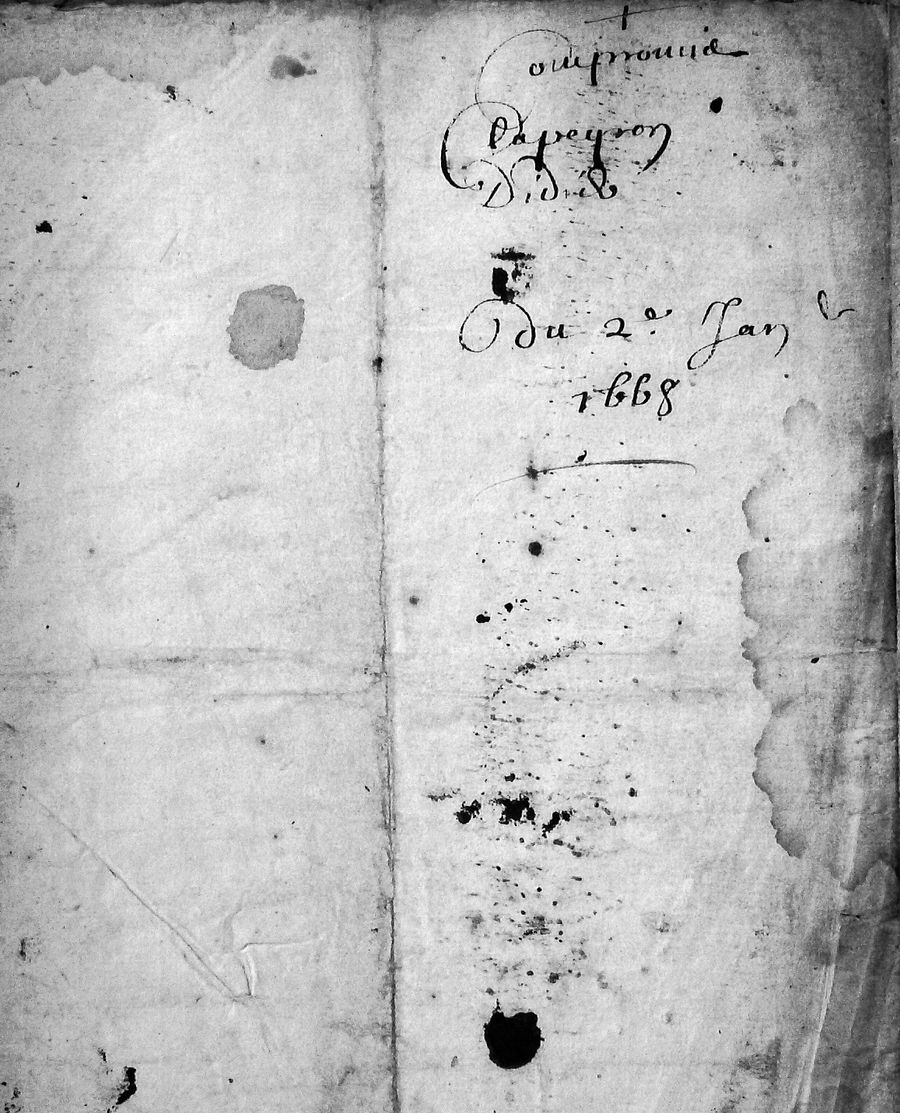 Compromis
Lapeyron
Didier
Du 2e Janer
1668